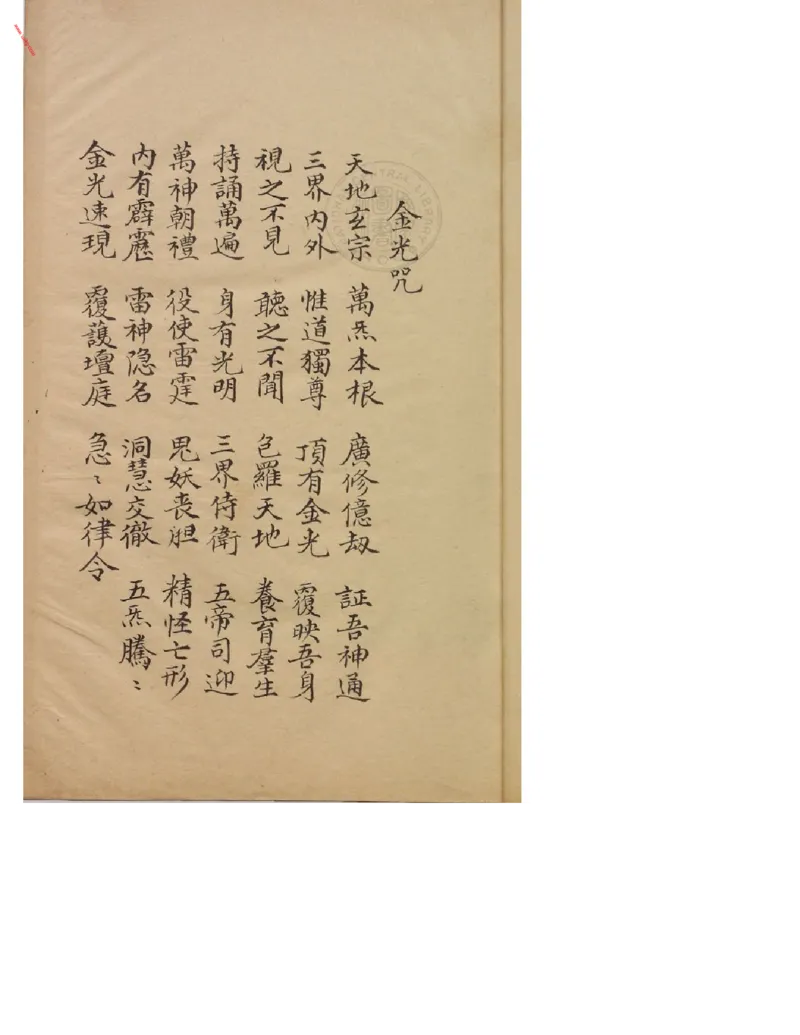 金光咒
天地玄宗 萬炁本根 廣修億劫 証吾神通
三界内外 惟道獨尊 頂有金光 覆映吾身
視之不見 聽之不聞 包羅天地 養育羣生
持誦萬遍 身有光明 三界侍衛 五帝司迎
萬神朝禮 役使雷霆 鬼妖丧胆 精怪亡形
内有霹靂 雷神隐名 洞慧交徹 五炁騰〻
金光速現 覆護壇庭 急〻如律令